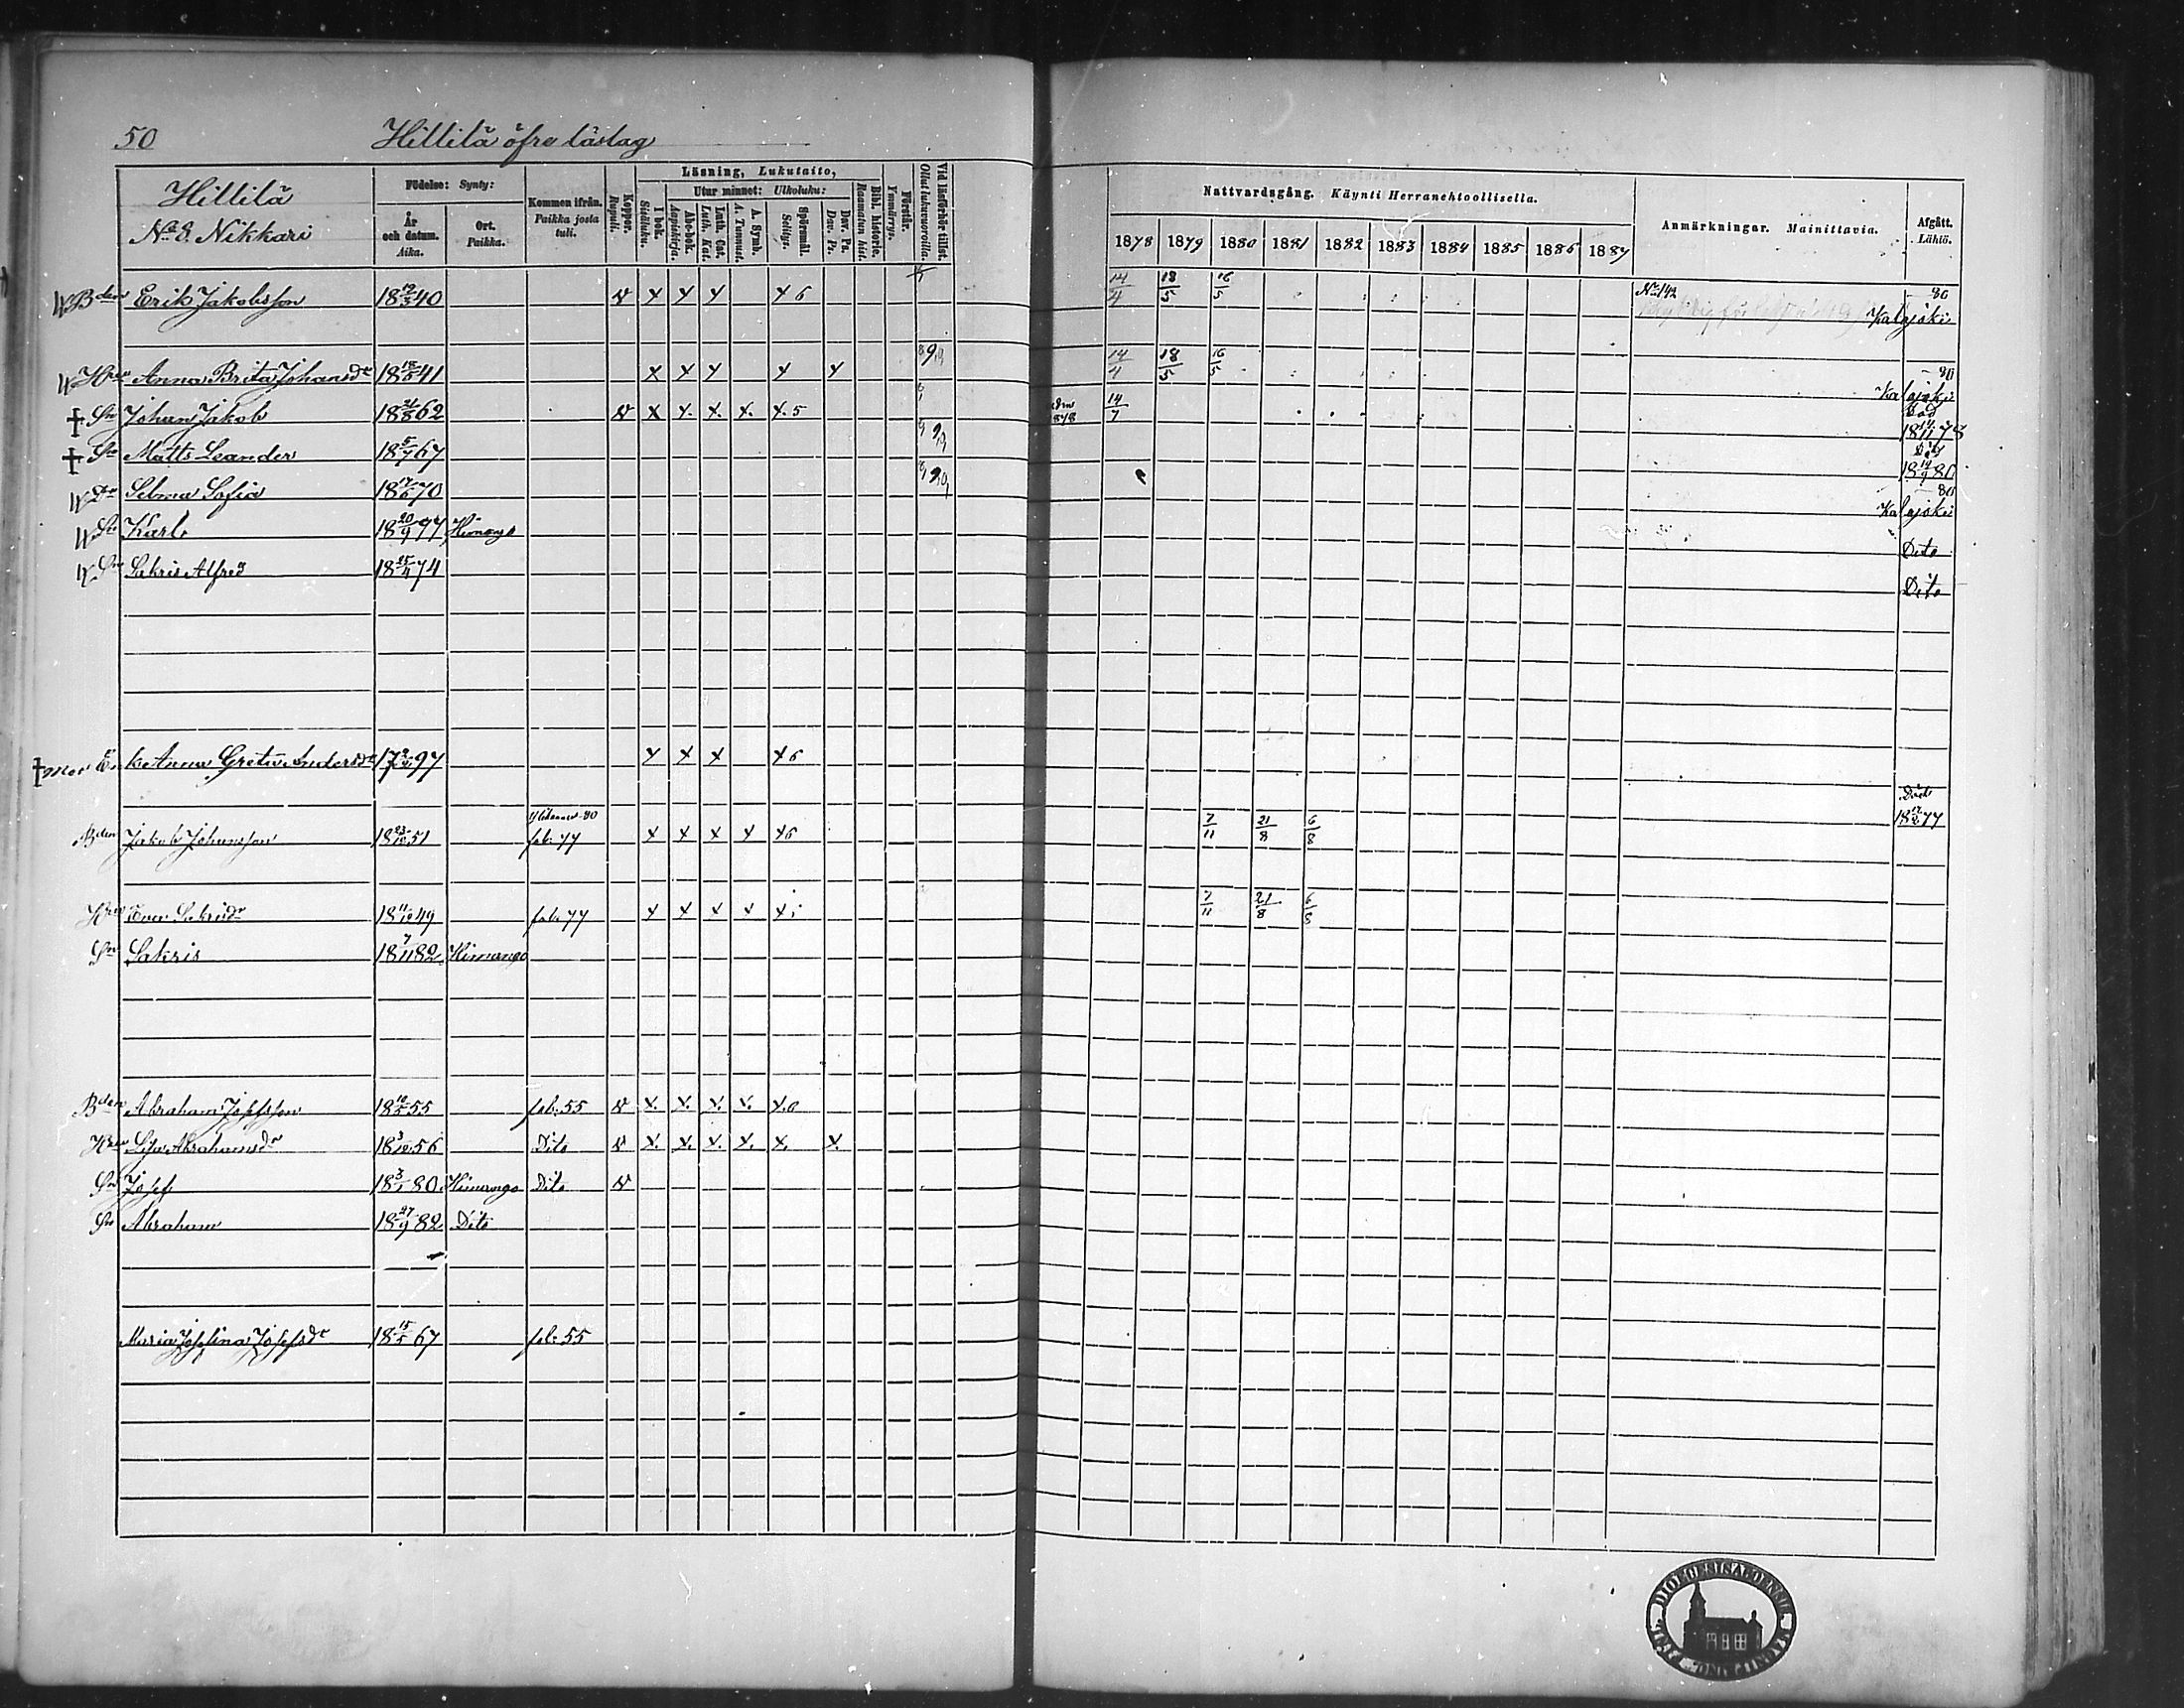 50 Hillilä öfre läslag
Hillilä
No 8. Nikkari
Födelse: Synty:
År och datum. Aika.
Ort. Paikka.
Kommen ifrån. Paikka josta tuli.
Koppor. Rupuli.
Läsning, Lukutaito,
I bok. Sisäluku.
Utur minnet: Ulkoluku:
Abc-bok. Aapiskirja.
Luth. Cat. Luth. Kat.
A. Symb. A. Tunnust.
Spörsmål. Selitys.
Dav. Ps. Dav. Ps.
Bibl. historie. Raamatun hist.
Förstår. Ymmärrys.
Vid läsförhör tillst. Ollut lukuvuoroilla.
Nattvardsgång. Käynti Herranehtoollisella.
1878 1879 1880 1881 1882 1883 1884 1885 1886 1887
Anmärkningar. Mainittavia.
Afgått. Lähtö.
Bden Erik Jakobsson 18 12/3 40 v x x x x 6 14/4 18/5 16/5 No 142 80 Kalajoki
Hrun Anna Brita Johansdr 41 x x x x x 14/4 18/5 16/5 80 Kalajoki
† Sn Johan Jakob 62 v x x. x. x. x. 5 14/7 Död 78
† Sn Matts Leander 18 5/7 67 Död 80
Dr Selma Sofia 70 80 Kalajoki
Sn Karl 18 20/9 77 Himango Dito
Sn Sakris Alfred 18 25/4 74 Dito
† Mor Enka Anna Greta Andersdr 97 x x x x 6 Död 77
Bden Jakob Johansson 51 fol. 77 x x x x x 6 7/11 21/8 6/8
Hrun Eva Sakrisdr 49 fol. 77 x x x x x 7/11 21/8 6/8
Sn Sakris 18 7/11 82 Himango
Bden Abraham Josefsson 55 fol. 55 v x. x. x. x. x.
Hrun Lisa Abrahamsdr 56 Dito v x. x. x. x. x. x.
Sn Josef 80 Himango Dito v
Sn Abraham 18 27/9 82 Dito
Maria Josefina Josefsdr 18 15/5 67 fol. 55